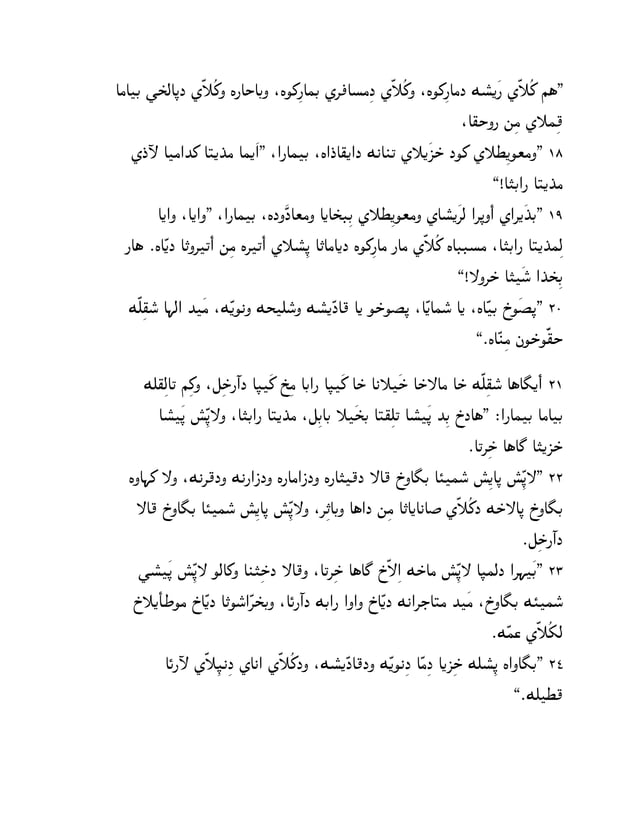 ”هم كُلاّي رَيشه دمارِكوه، وكُلاّي دِمسافري بمارِكوه، وباحاره وكُلاّي دپالخي بياما
قِملاي مِن روحقا،
١٨ ”ومعويِطلاي كود خزَيلاي تنانه دايقاذاه، بيمارا، ”اَيما مذيتا كداميا لآذي
مذيتا رابثا!“
١٩ ”بذَيراي أوپرا لرَيشاي ومعويِطلاي بِبخايا ومعادَّوده، بيمارا، ”وايا، وايا
لِمذيتا رابثا، مسبباه كُلاّي مار مارِكوه دياماثا پِشلاي أتيره مِن أتيروثا ديّاه. هار
بِخدا شَيثا خرولا!“
٢٠ ”پصَوخ بيّاه، يا شمايّا، پصوخو يا قادّيشه وشليحه ونويّه، مَيد الها شقِلّه
حقّوخون مِنّاه.“
٢١ أيگاها شقِلّه خا مالاخا خَيلانا خا كَيپا رابا مِخ كَيپا دآرخِل، وكِم تالِقله
بياما بيمارا: ”هادخ بِد پَيشا تلِقتا بخَيلا بابِل، مذيتا رابثا، ولاپِّش پَيشا
خزيثا گاها خِرتا.
٢٢ ”لاپِّش پايِش شميئا بگاوخ قالا دقيثاره ودزاماره ودزارنه ودقرنه، ولا كهاوه
بگاوخ پالاخه دكُلاّي صاناياثا مِن داها وباثِر، ولاپِّش پايِش شميئا بگاوخ قالا
دآرخِل.
٢٣ ”بَيهرا دلمپا لاپِّش ماخه اِلاّخ گاها خِرتا، وقالا دخِثنا وكالو لاپِّش پَيشي
شميئه بگاوخ، مَيد متاجرانه ديّاخ واوا رابه دآرئا، وبخرّاشوثا ديّاخ موطأيلاخ
لكُلاّي عمّه.
٢٤ ”بگاواه پِشله خِزيا دِمّا دِنويّه ودقادّيشه، ودكُلاّي اناي دِنپِلاّي لآرئا
قطيله.“